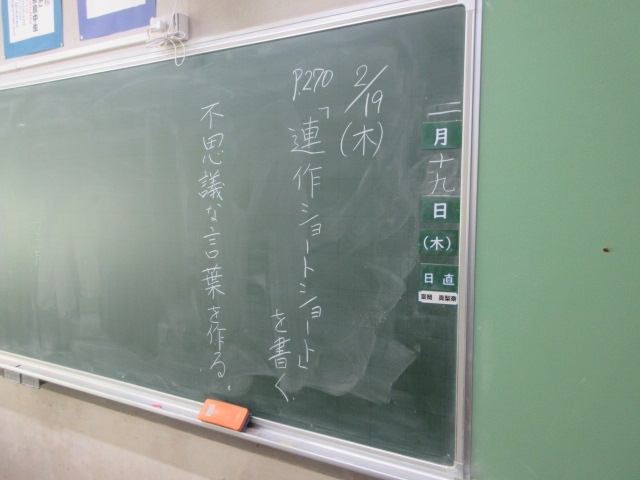 二月十九日(木)
日直
2/19(木)
P.270「連作ショートショート」を書く
不思議な言葉を作る。